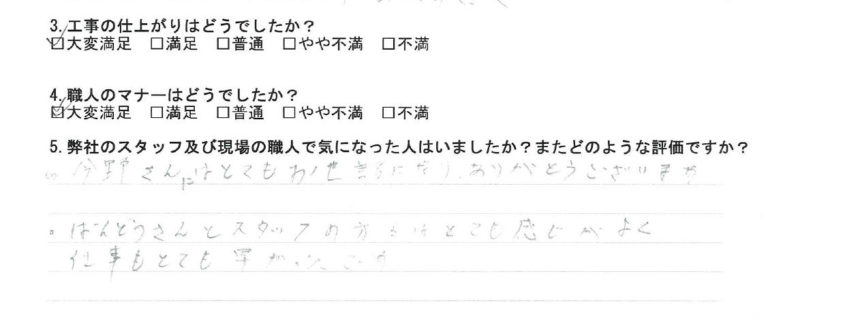 3.工事の仕上がりはどうでしたか？
☑大変満足 □満足 □普通 □やや不満 □不満
4.職人のマナーはどうでしたか？
☑大変満足 □満足 □普通 □やや不満 □不満
5.弊社のスタッフ及び現場の職人で気になった人はいましたか？またどのような評価ですか？
さんにはとてもお世話になり、ありがとうございます
。ばんどうさんとスタッフの方もとても感じがよく
仕事もとても